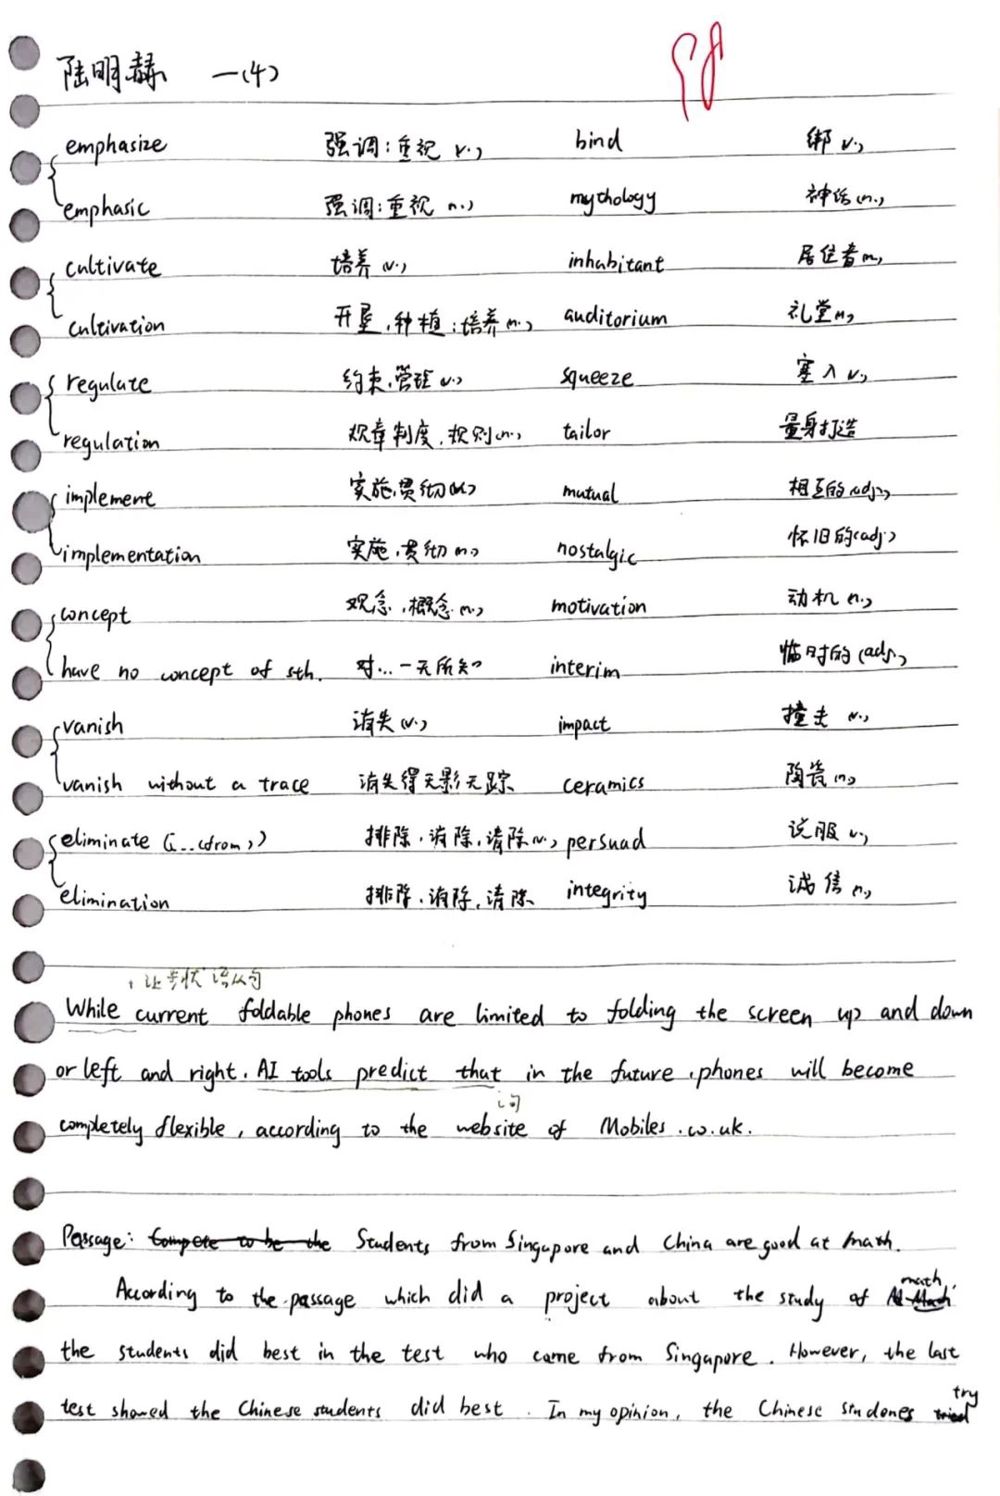 陆明赫 一(4) 98
emphasize 强调;重视 v.) bind 绑 v.)
emphasic 强调;重视 n.) mythology 神话(n.)
cultivate 培养(v.) inhabitant 居住者n.)
cultivation 开垦,种植;培养n.) auditorium 礼堂n.)
regulate 约束,管理v.) squeeze 塞入v.)
regulation 规章制度,规则(n.) tailor 量身打造
implement 实施,贯彻(v.) mutual 相互的adj.)
implementation 实施,贯彻n.) nostalgic 怀旧的(adj.)
concept 观念,概念n.) motivation 动机n.)
have no concept of sth. 对...一无所知 interim 临时的(adj.)
vanish 消失(v.) impact 撞击 v.)
vanish without a trace 消失得无影无踪 ceramics 陶瓷n.)
eliminate (...(from)) 排除,消除,清除v.) persuad 说服v.)
elimination 排除,消除,清除 integrity 诚信n.)
让步状语从句
While current foldable phones are limited to folding the screen up and down
or left and right. AI tools predict that in the future, phones will become
completely flexible, according to the website of Mobiles.co.uk.
Passage: Compete to be the Students from Singapore and China are good at math.
According to the passage which did a project about the study of math,
the students did best in the test who came from Singapore. However, the last
test showed the Chinese students did best. In my opinion, the Chinese studenes try